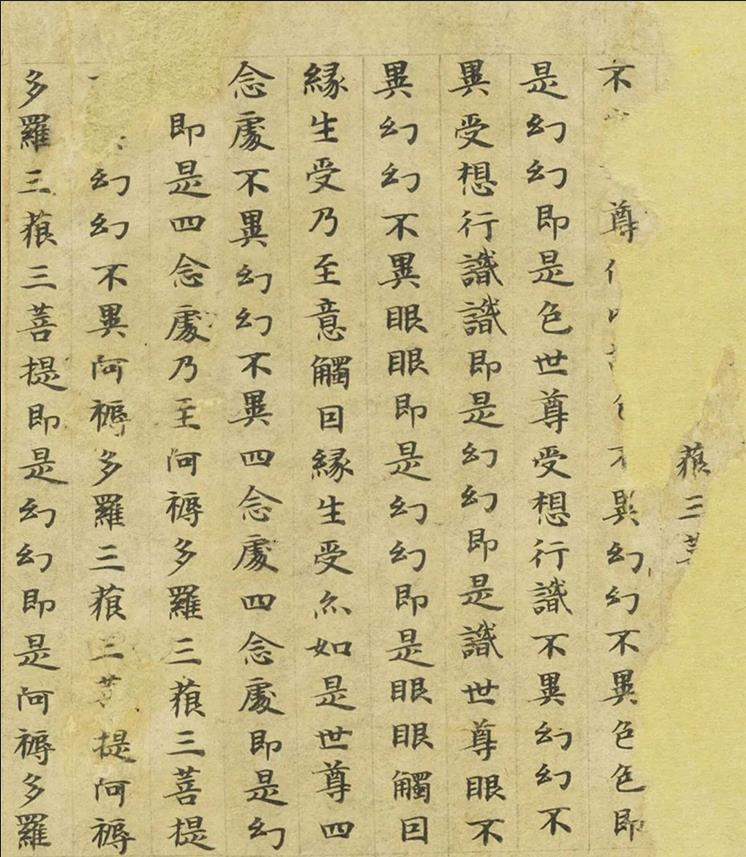 藐三菩
不尊不異幻幻不異色色即
是幻幻即是色世尊受想行識不異幻幻不
異受想行識識即是幻幻即是識世尊眼不
異幻幻不異眼眼即是幻幻即是眼眼觸因
緣生受乃至意觸因緣生受亦如是世尊四
念處不異幻幻不異四念處四念處即是幻
即是四念處乃至阿耨多羅三藐三菩提
幻幻不異阿耨多羅三藐三菩提阿耨
多羅三藐三菩提即是幻幻即是阿耨多羅